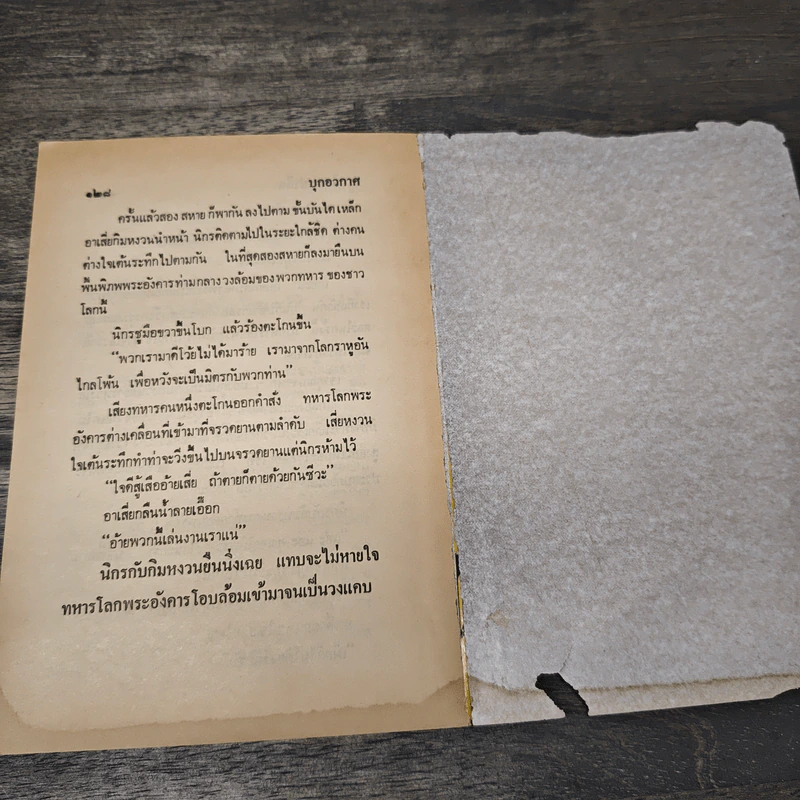 ๑๒๘ บุกอวกาศ
ครั้นแล้วสอง สหาย ก็พากัน ลงไปตาม ขั้นบันได เหล็ก
อาเสี่ยกิมหงวนนำหน้า นิกรติดตามไปในระยะใกล้ชิด ต่างคน
ต่างใจเต้นระทึกไปตามกัน ในที่สุดสองสหายก็ลงมายืนบน
พื้นพิภพพระอังคารท่ามกลาง วงล้อมของ พวกทหาร ของชาว
โลกนี้
นิกรชูมือขวาขึ้นโบก แล้วร้องตะโกนขึ้น
“พวกเรามาดีโว้ยไม่ได้มาร้าย เรามาจากโลกราหูอัน
ไกลโพ้น เพื่อหวังจะเป็นมิตรกับพวกท่าน”
เสียงทหารคนหนึ่งตะโกนออกคำสั่ง ทหารโลกพระ
อังคารต่างเคลื่อนที่เข้ามาที่จรวดยานตามลำดับ เสี่ยหงวน
ใจเต้นระทึกทำท่าจะวิ่งขึ้นไปบนจรวดยานแต่นิกรห้ามไว้
“ใจดีสู้เสืออ้ายเสี่ย ถ้าตายก็ตายด้วยกันซีวะ”
อาเสี่ยกลืนน้ำลายเอื๊อก
“อ้ายพวกนี้เล่นงานเราแน่”
นิกรกับกิมหงวนยืนนิ่งเฉย แทบจะไม่หายใจ
ทหารโลกพระอังคารโอบล้อมเข้ามาจนเป็นวงแคบ